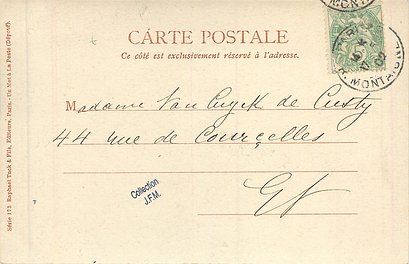 CARTE POSTALE
Ce côté est exclusivement réservé à l'adresse.
Madame Van Cuyck de Custy
44 rue de Courcelles
Collection
J.F.M.
Série 173 Raphael Tuck & Fils, Editeurs, Paris. - Un Mot à La Poste (Déposé).
MONTAIGNE